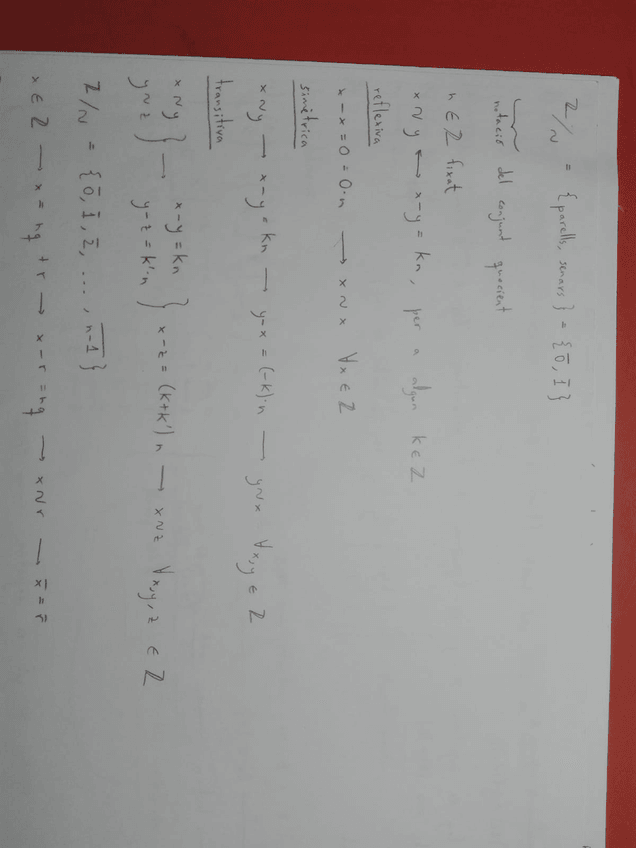 ℤ/~ = {parells, senars} = {0̅, 1̅}
notació del conjunt quocient
n ∈ ℤ fixat
x ~ y ⟷ x-y = kn, per a algun k ∈ ℤ
reflexiva
x-x = 0 = 0·n ⟶ x ~ x ∀x ∈ ℤ
simètrica
x ~ y ⟶ x-y = kn ⟶ y-x = (-k)·n ⟶ y ~ x ∀x,y ∈ ℤ
transitiva
x ~ y } ⟶ x-y = kn }
y ~ z } y-z = k'·n } x-z = (k+k')n ⟶ x ~ z ∀x,y,z ∈ ℤ
ℤ/~ = {0̅, 1̅, 2̅, ..., n-1̅}
x ∈ ℤ ⟶ x = nq + r ⟶ x-r = nq ⟶ x ~ r ⟶ x̅ = r̅